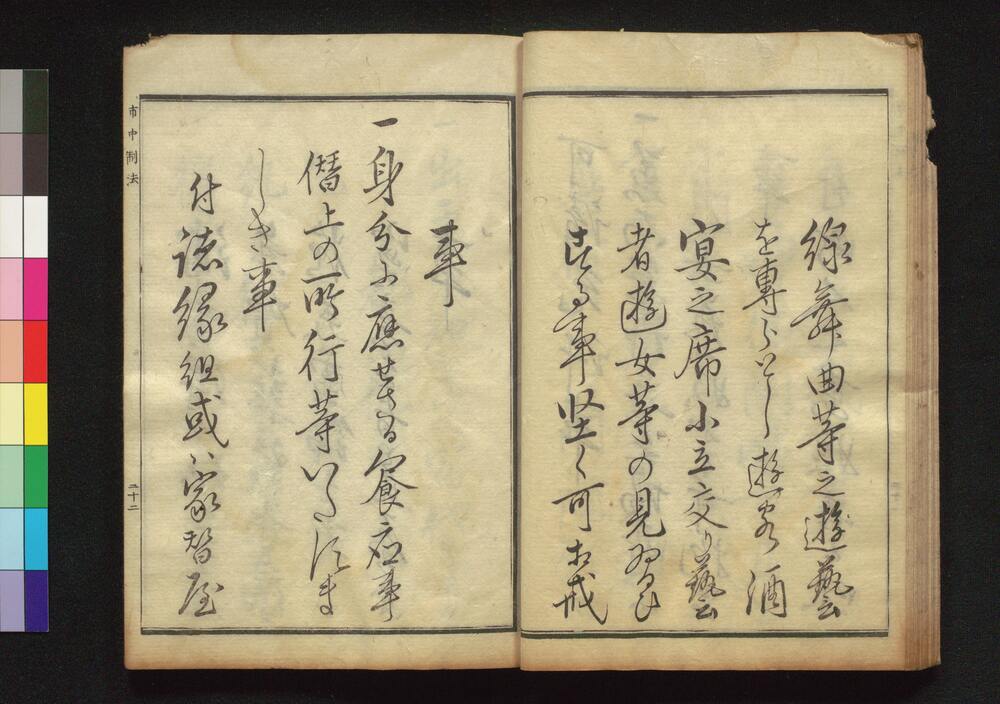 線舞曲等之遊藝
を専らいたし遊客酒
宴之席に立交り藝
者遊女等の見習ひ
する事堅く可相戒
事
一身分に應せさる饗應事
僭上の所行等いたすま
しき事
付諸縁組或ハ家督
市中制法
二十二